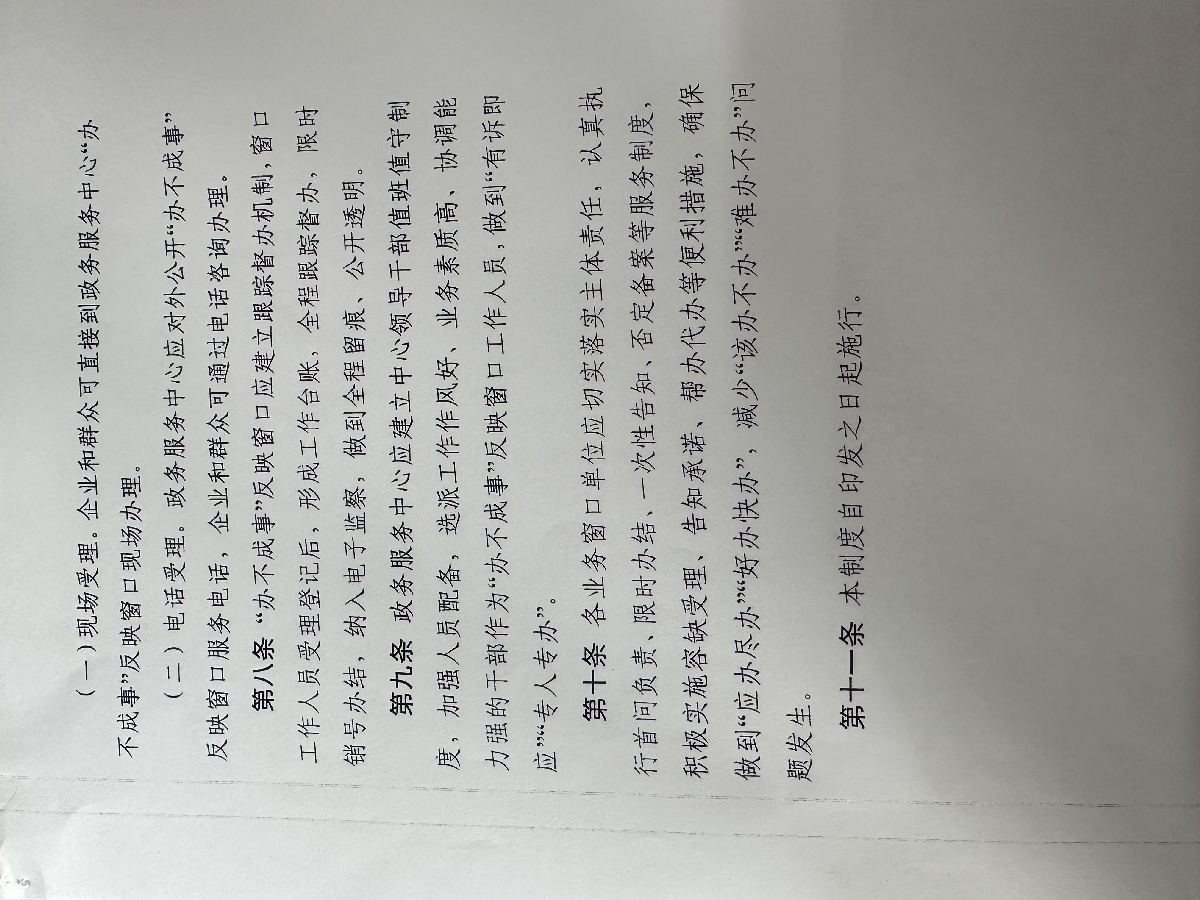 （一）现场受理。企业和群众可直接到政务服务中心“办
不成事”反映窗口现场办理。
（二）电话受理。政务服务中心应对外公开“办不成事”
反映窗口服务电话，企业和群众可通过电话咨询办理。
第八条 “办不成事”反映窗口应建立跟踪督办机制，窗口
工作人员受理登记后，形成工作台账，全程跟踪督办，限时
销号办结，纳入电子监察，做到全程留痕、公开透明。
第九条 政务服务中心应建立中心领导干部值班值守制
度，加强人员配备，选派工作作风好、业务素质高、协调能
力强的干部作为“办不成事”反映窗口工作人员，做到“有诉即
应”“专人专办”。
第十条 各业务窗口单位应切实落实主体责任，认真执
行首问负责、限时办结、一次性告知、否定备案等服务制度，
积极实施容缺受理、告知承诺、帮办代办等便利措施，确保
做到“应办尽办”“好办快办”，减少“该办不办”“难办不办”问
题发生。
第十一条 本制度自印发之日起施行。